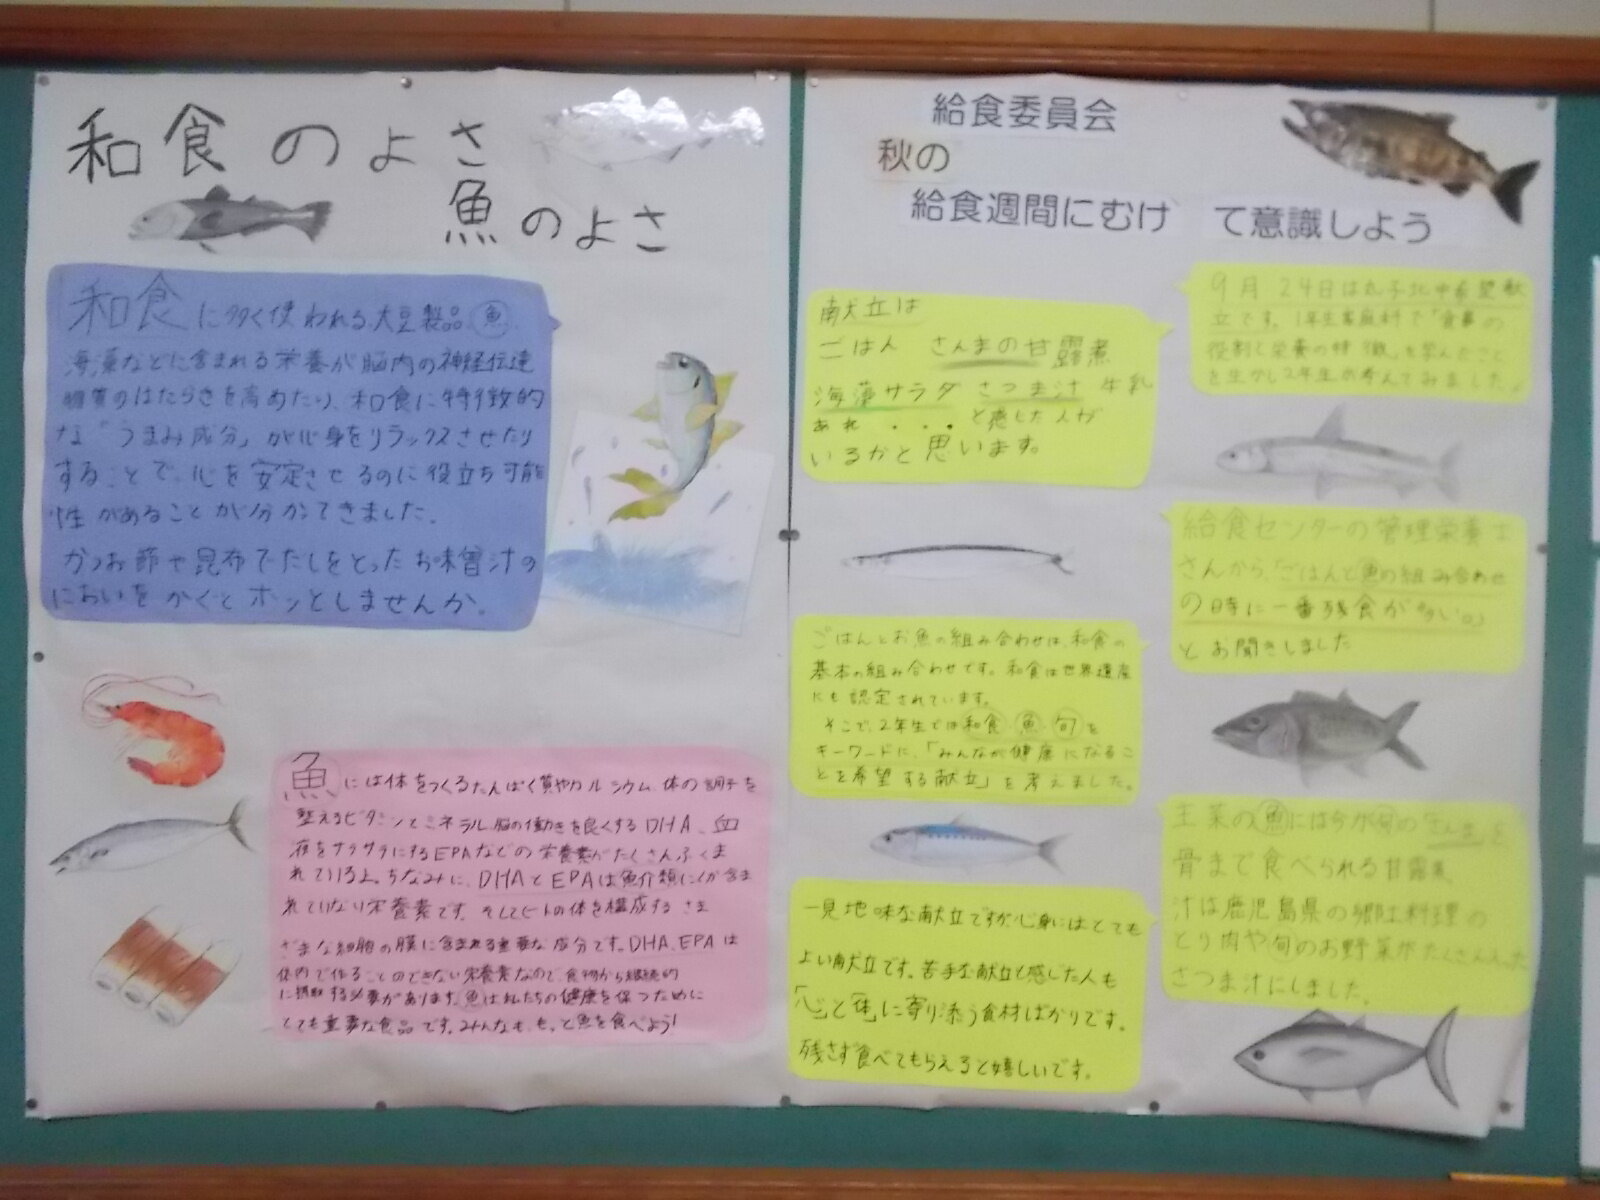 和食のよさ
魚のよさ
和食に多く使われる大豆製品、魚、
海藻などに含まれる栄養が脳内の神経伝達
物質のはたらきを高めたり、和食に特徴的
な「うまみ成分」が心身をリラックスさせたり
することで、心を安定させるのに役立ち可能
性があることが分かてきました。
かつお節や昆布でだしをとったお味噌汁の
においをかくとホッとしませんか。
魚には体をつくるたんぱく質やカルシウム、体の調子を
整えるビタミンとミネラル、脳の働きを良くするDHA、血
液をサラサラにするEPAなどの栄養素がたくさんふくま
れているよ。ちなみに、DHAとEPAは魚介類にしか含ま
れていない栄養素です。そしてヒトの体を構成するさま
ざまな細胞の膜に含まれる重要な成分です。DHA、EPAは
体内で作ることのできない栄養素なので、食物から継続的
に摂取する必要があります。魚は私たちの健康を保つために
とても重要な食品です。みんなも、もっと魚を食べよう!
給食委員会
秋の
給食週間にむけて意識しよう
9月24日は丸子北中希望献
立です。1年生家庭科で「食事の
役割と栄養の特徴」を学んだこと
を生かし2年生が考えてみました。
献立は
ごはん さんまの甘露煮
海藻サラダ さつま汁 牛乳
あれ・・・と感じた人が
いるかと思います。
給食センターの管理栄養士
さんから、「ごはんと魚の組み合わせ
の時に一番残食が多い。」
とお聞きしました
ごはんとお魚の組み合わせは、和食の
基本の組み合わせです。和食は世界遺産
にも認定されています。
そこで、2年生では和食・魚・旬を
キーワードに、「みんなが健康になるこ
とを希望する献立」を考えました。
主菜の魚には今が旬のさんまを
骨まで食べられる甘露煮、
汁は鹿児島県の郷土料理の
とり肉や旬のお野菜がたくさん入った
さつま汁にしました。
一見地味な献立ですが、心身にはとても
よい献立です。苦手な献立と感じた人も
「心」と「体」に寄り添う食材ばかりです。
残さず食べてもらえると嬉しいです。